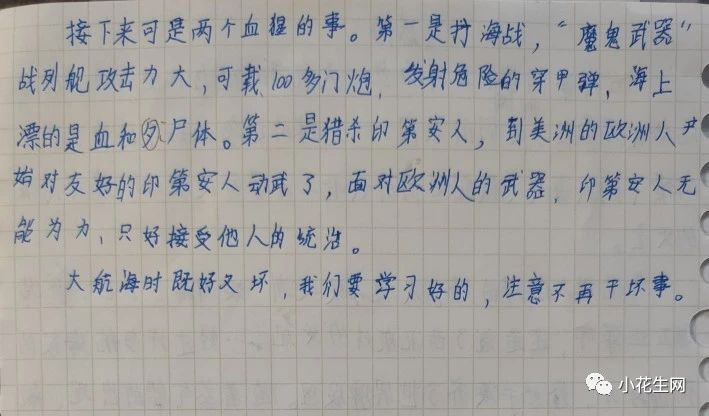 接下来可是两个血猩的事。第一是打海战，“魔鬼武器”
战列舰攻击力大，可载100多门炮，发射危险的穿甲弹，海上
漂的是血和尸体。第二是猎杀印第安人，到美洲的欧洲人开
始对友好的印第安人动武了，面对欧洲人的武器，印第安人无
能为力、只好接受他人的统治。
大航海时既好又坏，我们要学习好的，注意不再干坏事。
小花生网